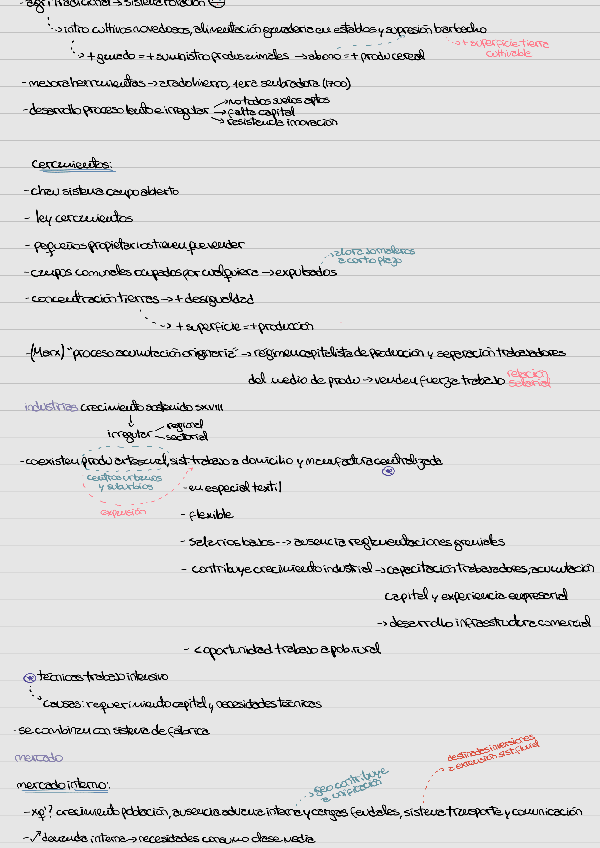 -agri tradicional → sistema rotación
intro cultivos novedosos, alimentación ganadería en establos y supresión barbecho
+ganado = + suministro produs animales → abono = + produ cereal
+superficie tierra
cultivable
-mejora herramientas → arado hierro, 1era sembradora (1700)
-desarrollo proceso lento e irregular → no todos suelos aptos
→ falta capital
→ resistencia innovación
cercamientos:
-chau sistema campo abierto
- ley cercamientos
- pequeños propietarios tienen que vender
ahora jornaleros
a corto plazo
-campos comunales ocupados por cualquiera → expulsados
-concentración tierras → + desigualdad
+ superficie = + producción
-(Marx) "proceso acumulación originaria" → régimen capitalista de producción y separación trabajadores
del medio de produ → venden fuerza trabajo
relación
salarial
industrias crecimiento sostenido sXVIII
irregular
regional
sectorial
-coexisten produ artesanal, sist trabajo a domicilio y manufactura centralizada
centros urbanos
y suburbios
expansión
-en especial textil
- flexible
- salarios bajos --> ausencia reglamentaciones gremiales
- contribuye crecimiento industrial → capacitación trabajadores, acumulación
capital y experiencia empresarial
→ desarrollo infraestructura comercial
- oportunidad trabajo a pob. rural
técnicas trabajo intensivo
causas: requerimiento capital y necesidades técnicas
-se combinan con sistema de fábrica
mercado
mercado interno:
geo contribuye
a unificación
destinadas inversiones
a extensión sist fluvial
-xq'? crecimiento población, ausencia aduana interna y cargas feudales, sistema transporte y comunicación
- demanda interna → necesidades consumo clase media